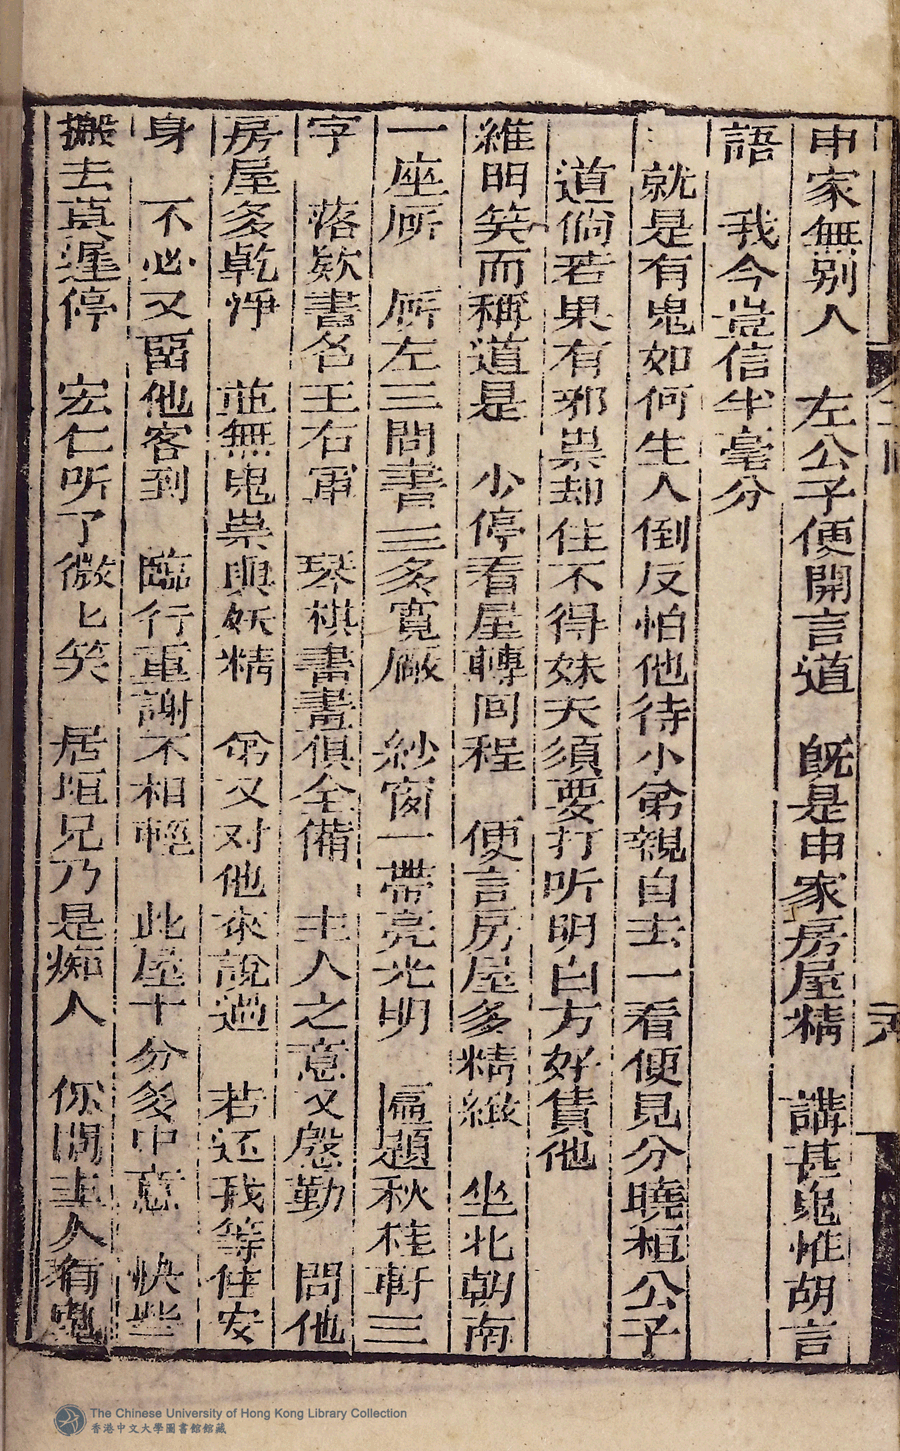 申家無别人　左公子便開言道　旣是申家房屋精　講甚鬼惟胡言
語　我今豈信半毫分
就是有鬼如何生人倒反怕他待小弟親自去一看便見分曉桓公子
道倘若果有邪祟却住不得妹夫須要打听明白方好賃他
維明笑而稱道是　少停看屋轉囘程　便言房屋多精緻　坐北朝南
一座𠩄　𠩄左三間書三多寬厰　紗窗一帶亮光明　匾題秋桂軒三
字　落欵書名王右軍　琴棋書畫俱全備　主人之意又慇勤　問他
房屋多乾淨　並無鬼祟與妖精　弟又对他來說過　若还我等住安
身　不必又留他客到　臨行重謝不相輕　此屋十分多中意　快些
搬去莫遲停　宏仁听了微匕笑　居垣兄乃是痴人　你問主人有鬼
二囘
The Chinese University of Hong Kong Library Collection
香港中文大學圖書館館藏